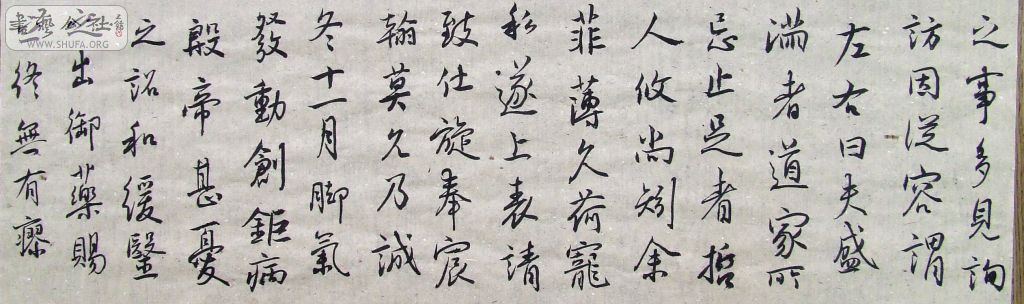 之事多見詢
訪因從容謂
左右曰夫盛
滿者道家所
忌止足者哲
人攸尚矧余
菲薄久荷寵
私遂上表請
致仕旋奉宸
翰莫允乃誠
冬十一月腳氣
發動創鉅病
殷帝甚憂
之詔和緩醫
出御藥賜
終無有瘳
書藝公社
WWW.SHUFA.ORG